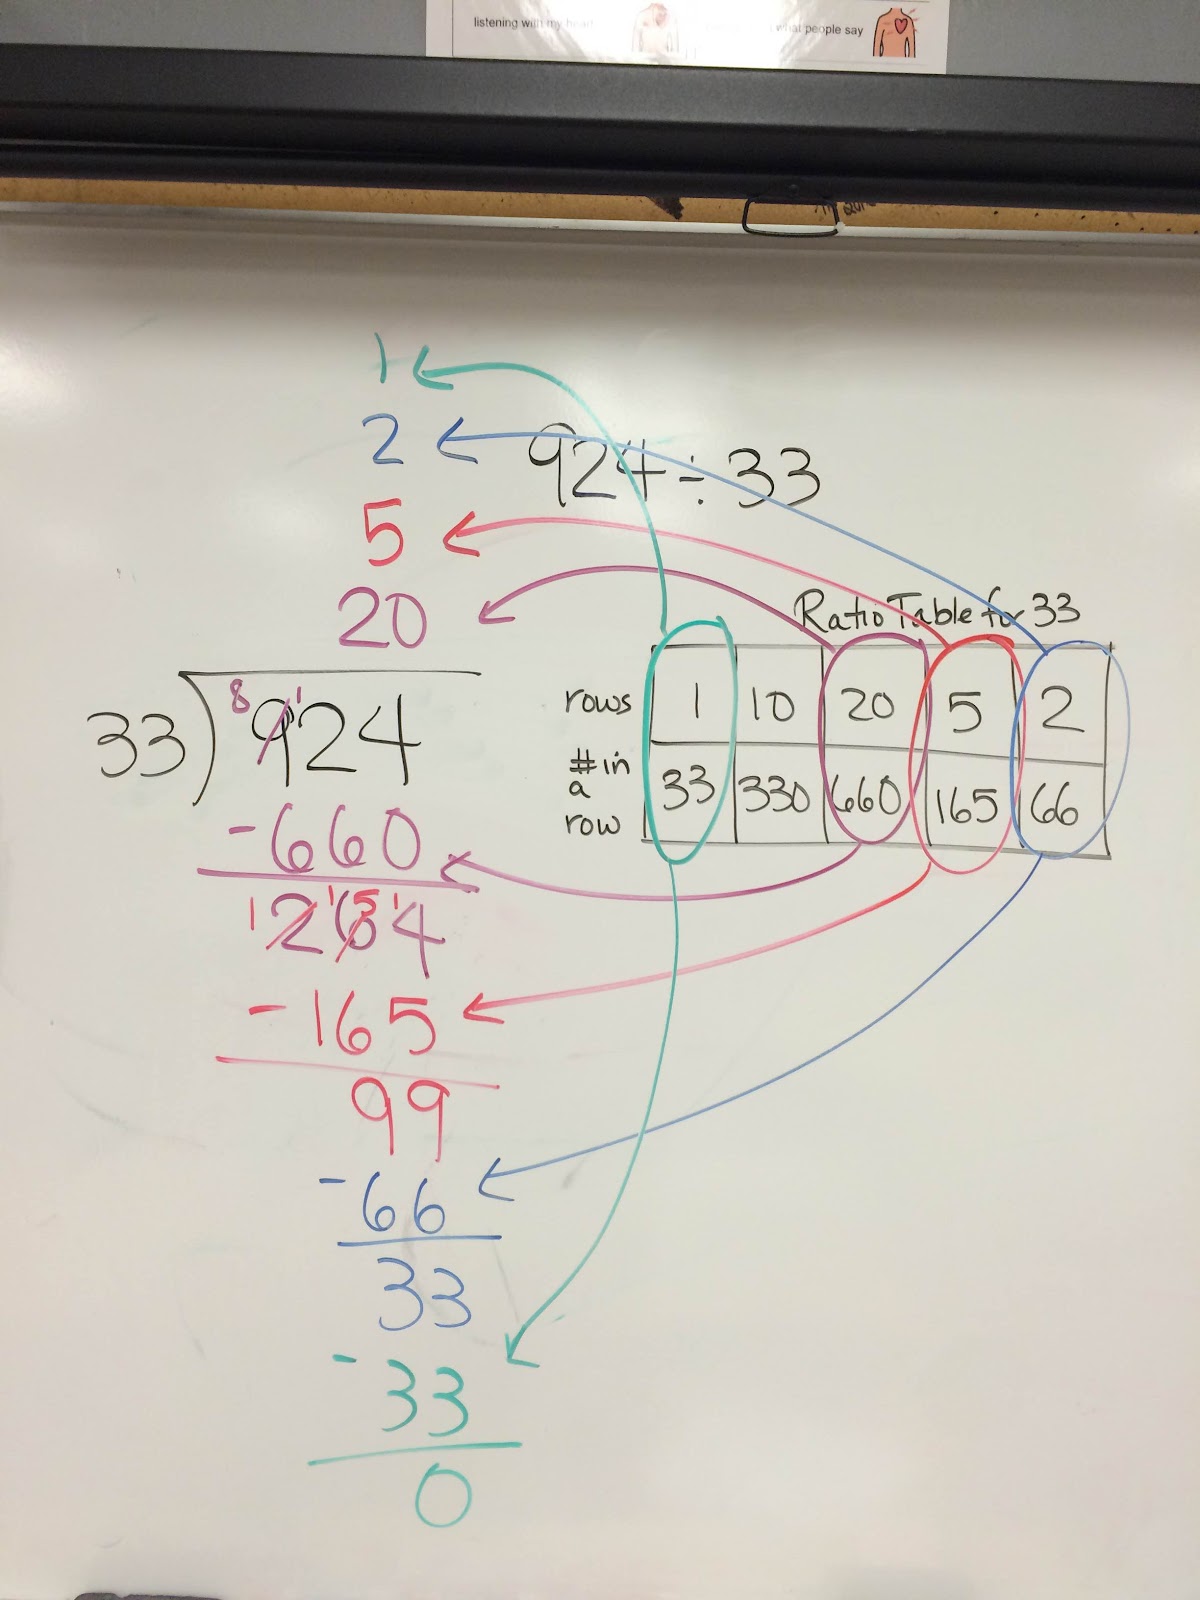 listening with my heart
what people say
1
2
924 ÷ 33
5
20
Ratio Table for 33
rows 1 10 20 5 2
# in a row 33 330 660 165 66
8 1
33)924
-660
1 1 5 1
264
-165
99
-66
33
-33
0